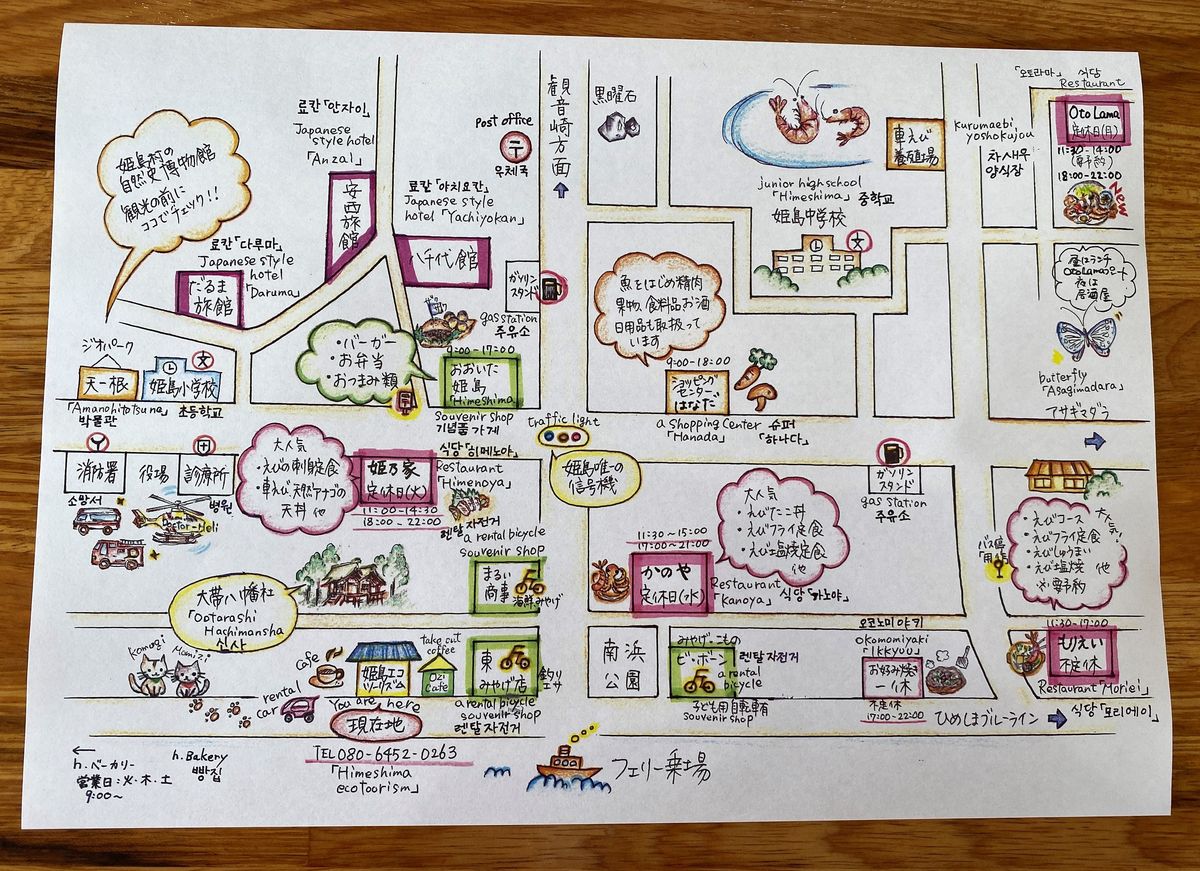 姫島村の
自然史博物館
観光の前に
ココでチェック!!
료칸「안자이」
Japanese
style hotel
「Anzai」
安西旅館
Post office
〒
우체국
観音崎方面
黒曜石
車えび
養殖場
Kurumaebi
yoshokujou
차새우
양식장
「오토라마」 식당
Restaurant
Oto Lama
定休日(月)
11:30-14:00
(要予約)
18:00-22:00
NOW
료칸「야치요칸」
Japanese style
hotel 「Yachiyokan」
八千代館
junior high school
「Himeshima」 중학교
姫島中学校
文
료칸「다루마」
Japanese style
hotel
「Daruma」
だるま
旅館
ガソリン
スタンド
gas station
주유소
魚をはじめ精肉
果物、食料品お酒
日用品も取扱って
います
昼はランチ
Oto Lamaのみート
夜は
居酒屋
butterfly
「Asagimadara」
アサギマダラ
ジオパーク
天一根
「Amanohitotsune」
박물관
文
姫島小学校
초등학교
・バーガー
・お弁当
・おつまみ類
9:00-17:00
おおいた
姫島
「Himeshima」
Souvenir shop
기념품 가게
9:00-18:00
ショッピング
センター
はなだ
a shopping center
「Hanada」
슈퍼
「하나다」
traffic light
姫島唯一の
信号機
消防署
소방서
役場
診療所
병원
Doctor-Heli
大人気
・えびの刺身定食
・車えび、天然アナゴの
天丼 他
식당「히메노야」
Restaurant
「Himenoya」
姫乃家
定休日(火)
11:00-14:30
18:00-22:00
ガソリン
スタンド
gas station
주유소
大人気
・えびたこ丼
・えびフライ定食
・えび塩焼定食
他
バス停
大人気!
・えびコース
・えびフライ定食
・えびしゅうまい
・えび塩焼 他
※要予約
렌탈 자전거
a rental bicycle
souvenir shop
まるい
商事
海鮮みやげ
11:30~15:00
17:00~21:00
かのや
定休日(水)
Restaurant
「Kanoya」
식당「카노야」
大帯八幡社
「Ootarashi
Hachimansha」
신사
Komugi
Momizi
cafe
rental
car
姫島エコ
ツーリズム
take out
coffee
Ozi
Cafe
東
みやげ店
釣り
エサ
a rental bicycle
souvenir shop
렌탈 자전거
You are here
現在地
TEL 080-6452-0263
「Himeshima
ecotoorism」
南浜
公園
みやげ・こもの
ビ・ボーン
렌탈 자전거
a rental
bicycle
子ども用自転車有
souvenir shop
오코노미야키
Okonomiyaki
「Ikkyuu」
お好み焼
一休
不定休
17:00-22:00
11:30-17:00
もりえい
不定休
Restaurant「Moriei」
식당「모리에이」
ひめしまブルーライン
フェリー乗場
h.ベーカリー
営業日:火・木・土
9:00~
h.Bakery
빵집